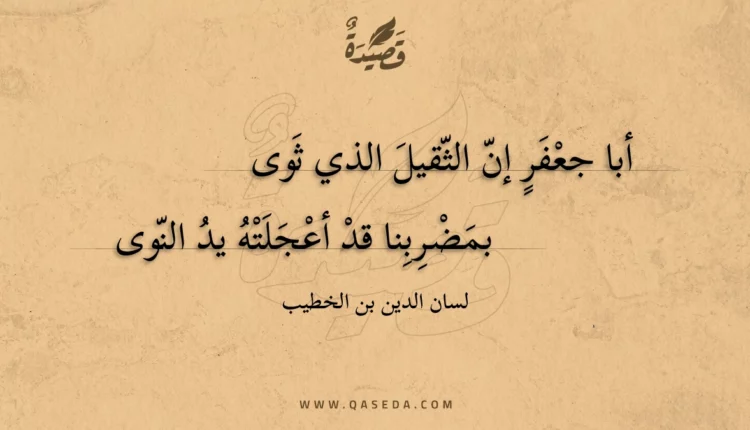 قَصِيْدَةٌ
أبا جعْفَرٍ إنّ الثّقيلَ الذي ثَوى
بمَضْرِبِنا قدْ أعْجَلَتْهُ يدُ النّوى
لسان الدين بن الخطيب
WWW.QASEDA.COM